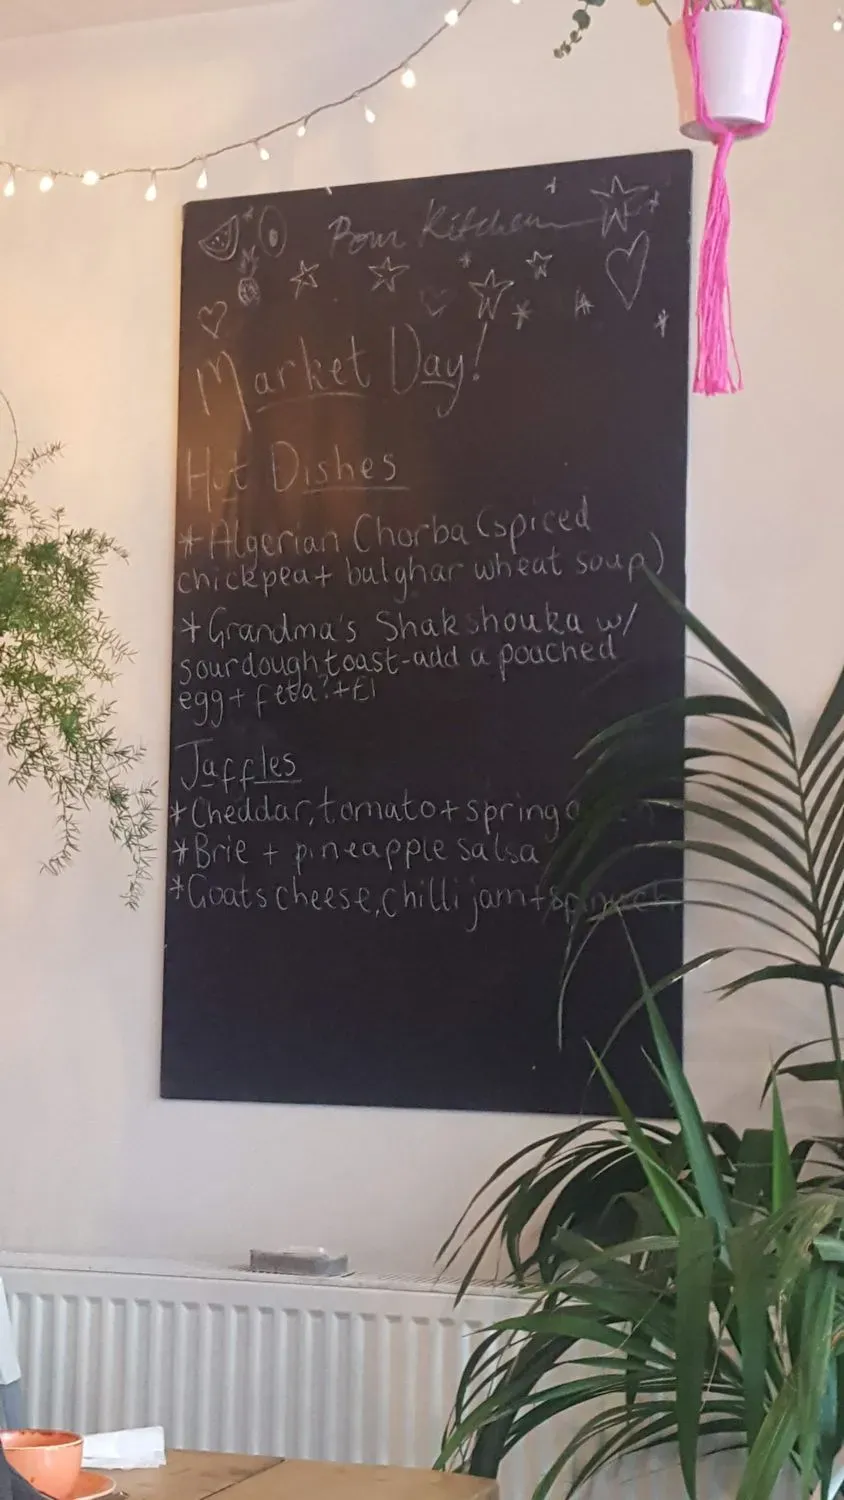 Pour Kitchen
Market Day!
Hot Dishes
* Algerian Chorba (spiced
chickpea + bulghar wheat soup)
* Grandma's Shakshouka w/
sourdough toast - add a poached
egg + feta? + £1
Jaffles
* Cheddar, tomato + spring
* Brie + pineapple salsa
* Goats cheese, chilli jam + spinach